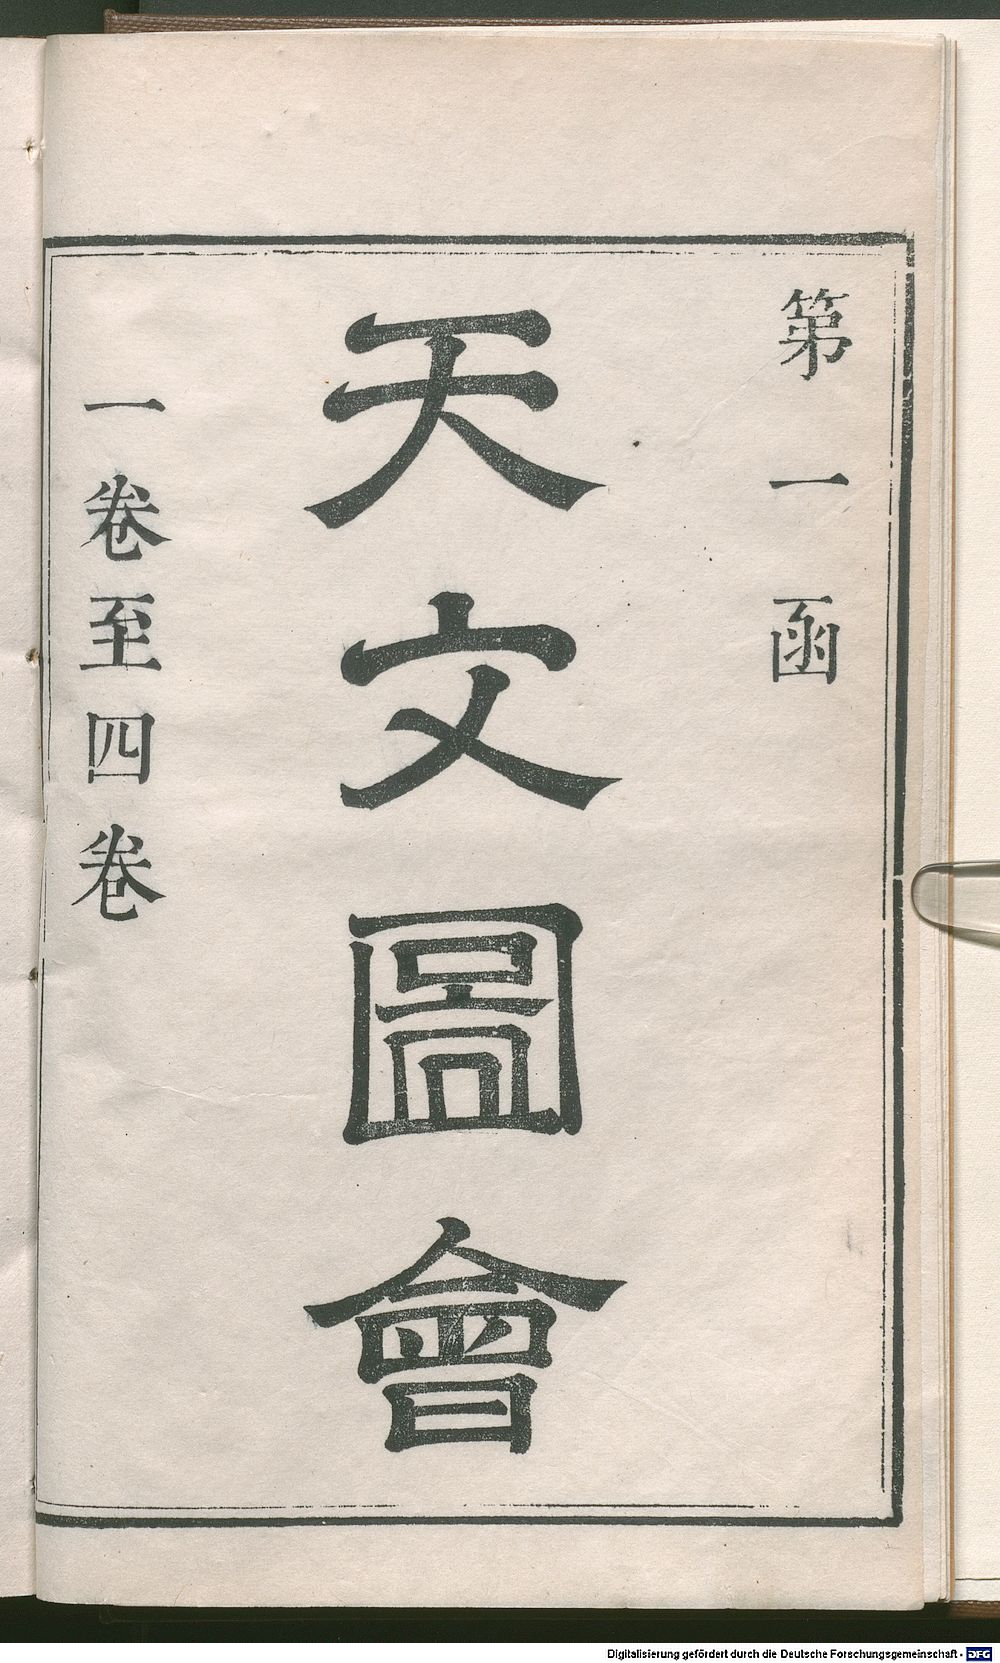 第一函
天文圖會
一卷至四卷
Digitalisierung gefördert durch die Deutsche Forschungsgemeinschaft - DFG